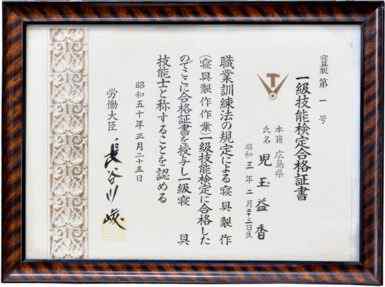 寝具製 第 一 号
一級技能検定合格証書
本籍 広島県
氏名 児玉益香
昭和三年二月二十二日生
職業訓練法の規定による寝具製作
(寝具製作作業)一級技能検定に合格した
のでここに合格証書を授与し一級寝具
技能士と称することを認める
昭和五十年三月二十五日
労働大臣 長谷川峻